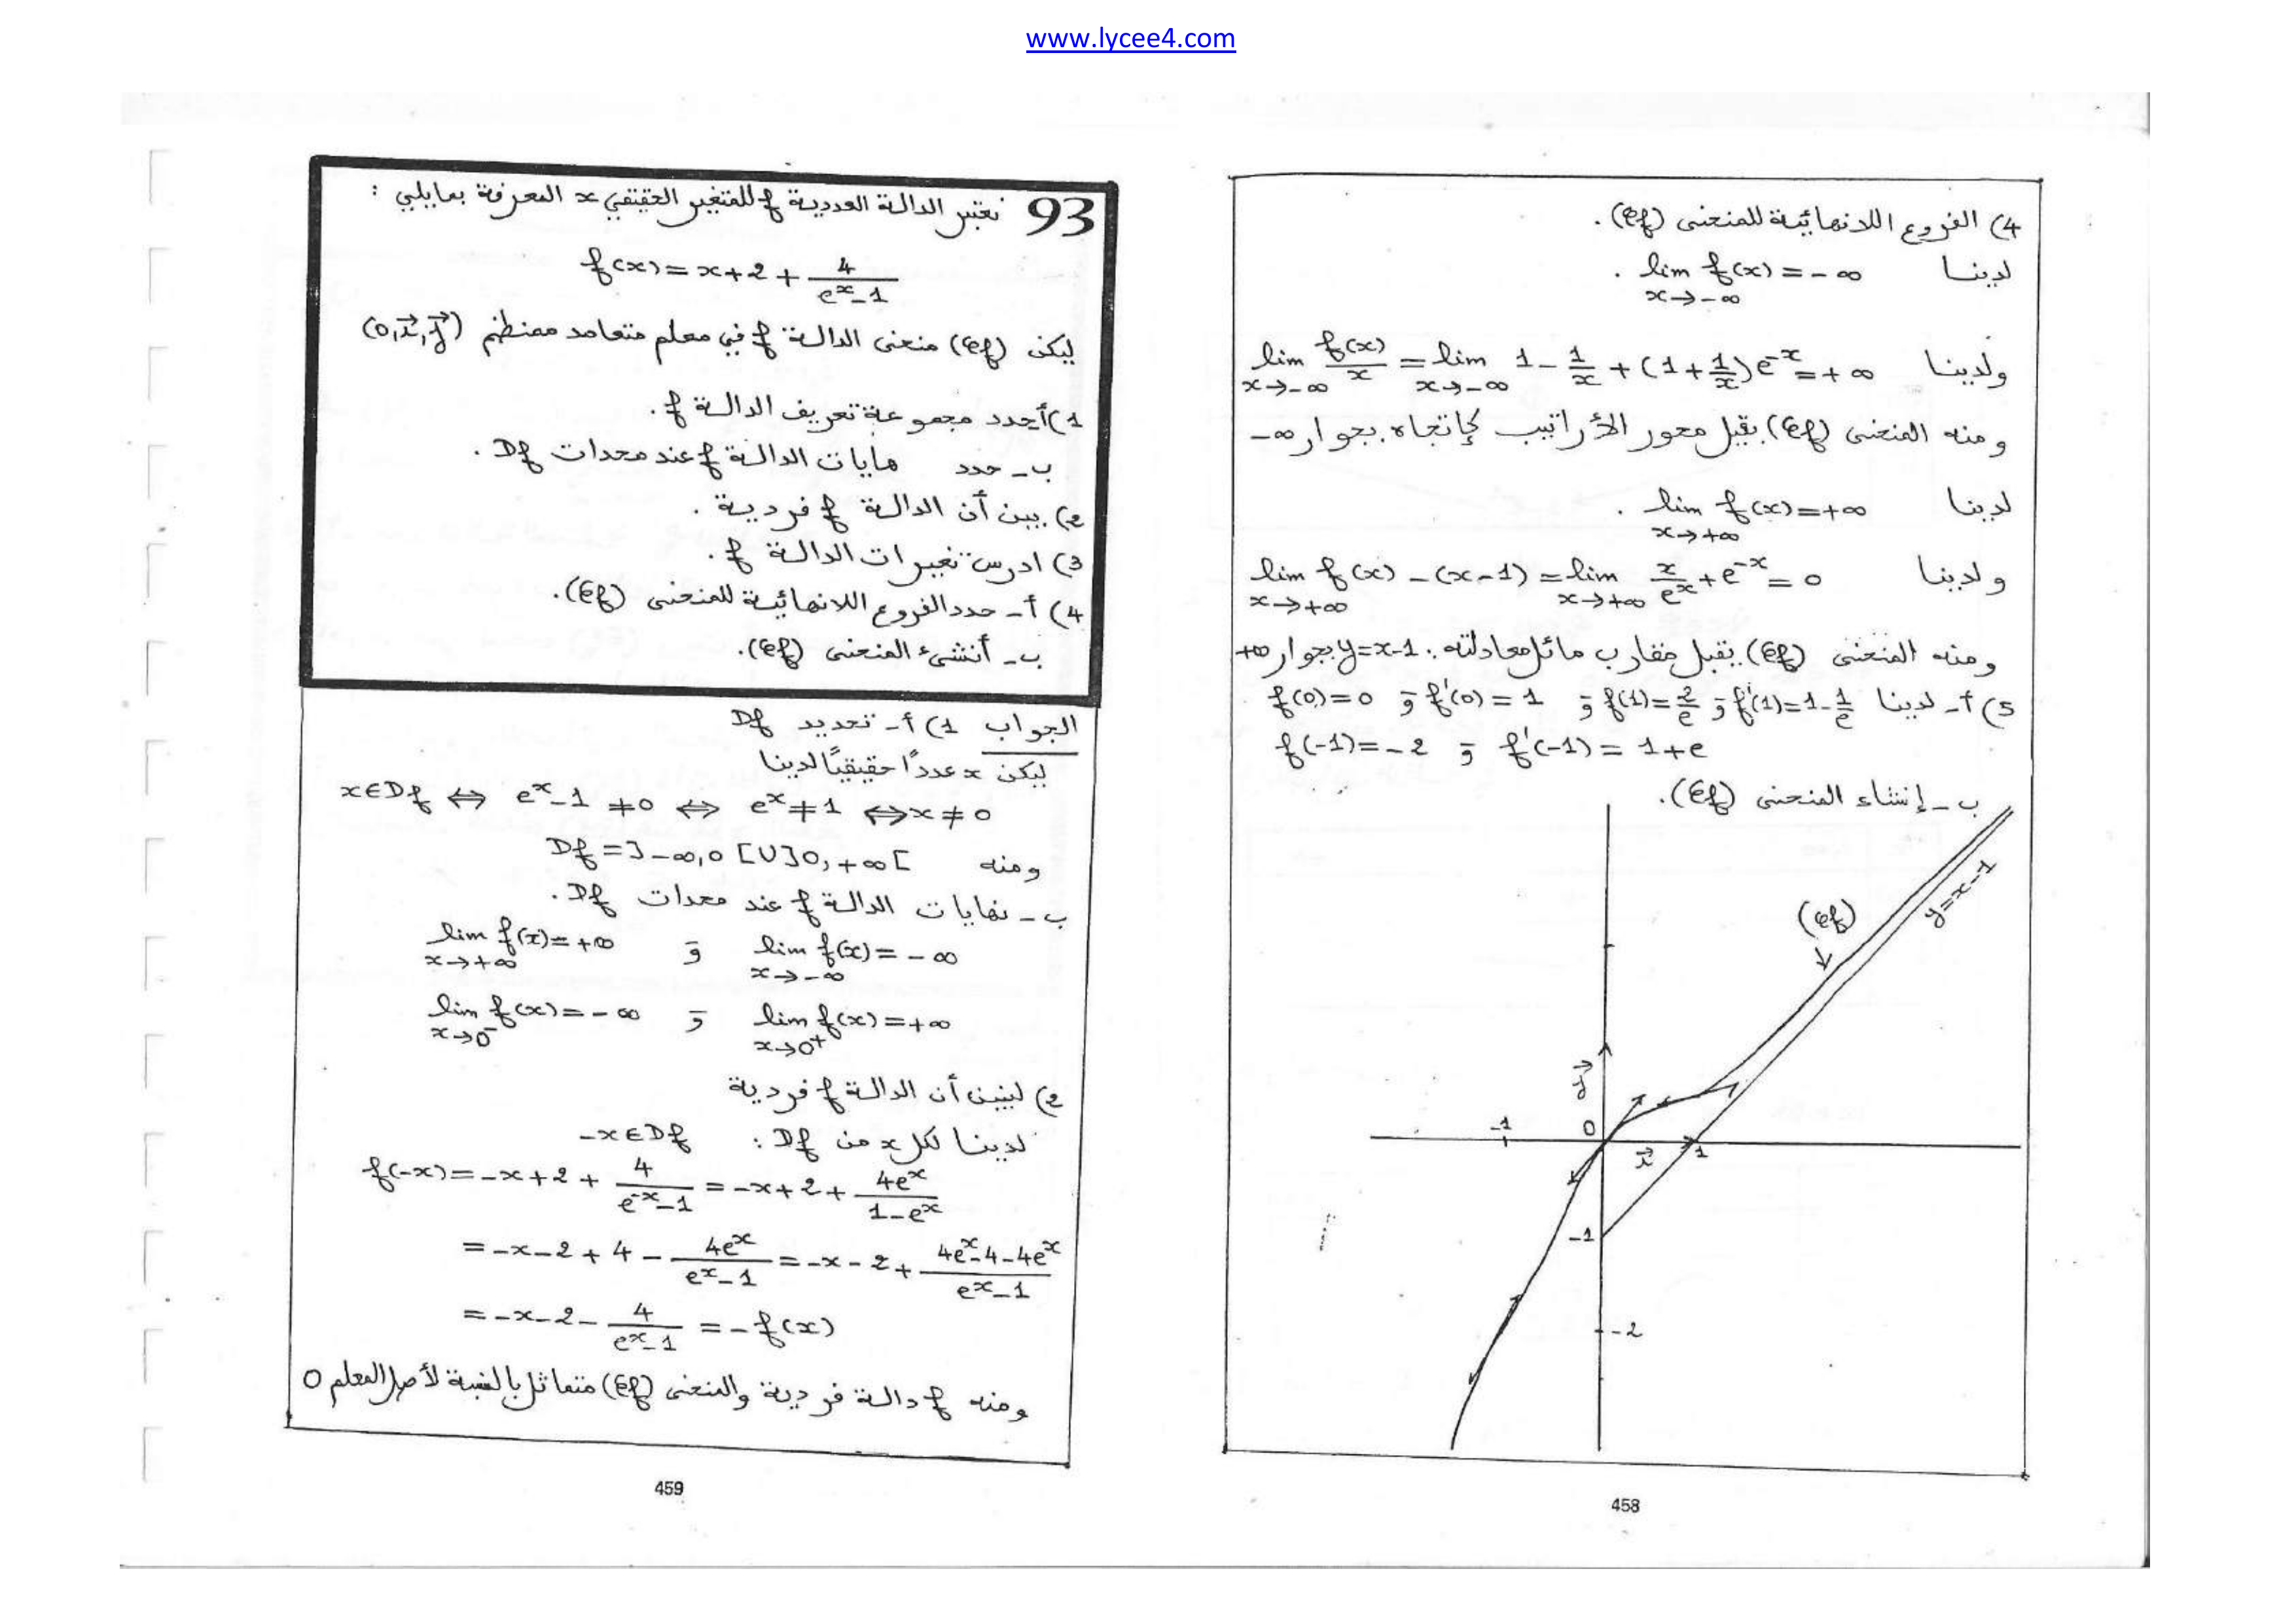 www.lycee4.com
4) الفروع اللانهائية للمنحنى (Cf).
لدينا lim f(x) = -∞ .
x→-∞
ولدينا lim f(x)/x = lim 1 - 1/x + (1 + 1/x)e^-x = +∞
x→-∞ x→-∞
ومنه المنحنى (Cf) يقبل محور الأراتيب كإتجاه بجوار -∞
لدينا lim f(x) = +∞ .
x→+∞
ولدينا lim f(x) - (x-1) = lim x/e^x + e^-x = 0
x→+∞ x→+∞
ومنه المنحنى (Cf) يقبل مقارب مائل معادلته: y=x-1 بجوار +∞
5) أ- لدينا f'(1)=1-1/e و f(1)=2/e و f'(0)=1 و f(0)=0
f(-1)=-2 و f'(-1)=1+e
ب- إنشاء المنحنى (Cf).
(Cf)
y=x-1
j
-1 0 i 1
-1
-2
458
93 نعتبر الدالة العددية f للمتغير الحقيقي x المعرفة بمايلي :
f(x) = x+2 + 4/(e^x-1)
ليكن (Cf) منحنى الدالة f في معلم متعامد ممنظم (o,i,j)
1) أ حدد مجموعة تعريف الدالة f.
ب- حدد هايات الدالة f عند محدات Df .
2) بين أن الدالة f فردية .
3) ادرس تغيرات الدالة f.
4) أ- حدد الفروع اللانهائية للمنحنى (Cf).
ب- أنشىء المنحنى (Cf).
الجواب 1) أ- تحديد Df
ليكن x عددًا حقيقيًا لدينا
x∈Df ⇔ e^x-1 ≠ 0 ⇔ e^x ≠ 1 ⇔ x ≠ 0
ومنه Df = ]-∞,0[∪]0,+∞[
ب- نهايات الدالة f عند محدات Df.
lim f(x) = +∞ و lim f(x) = -∞
x→+∞ x→-∞
lim f(x) = -∞ و lim f(x) = +∞
x→0^- x→0^+
2) لنبين أن الدالة f فردية
لدينا لكل x من Df : -x∈Df
f(-x) = -x+2 + 4/(e^-x-1) = -x+2 + 4e^x/(1-e^x)
= -x-2+4 - 4e^x/(e^x-1) = -x-2 + (4e^x-4-4e^x)/(e^x-1)
= -x-2 - 4/(e^x-1) = -f(x)
ومنه f دالة فردية والمنحنى (Cf) متماثل بالنسبة لأصل المعلم O
459